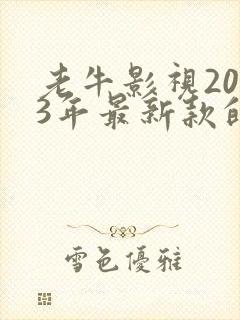 老牛影視20
3年最新款
雪色優雅